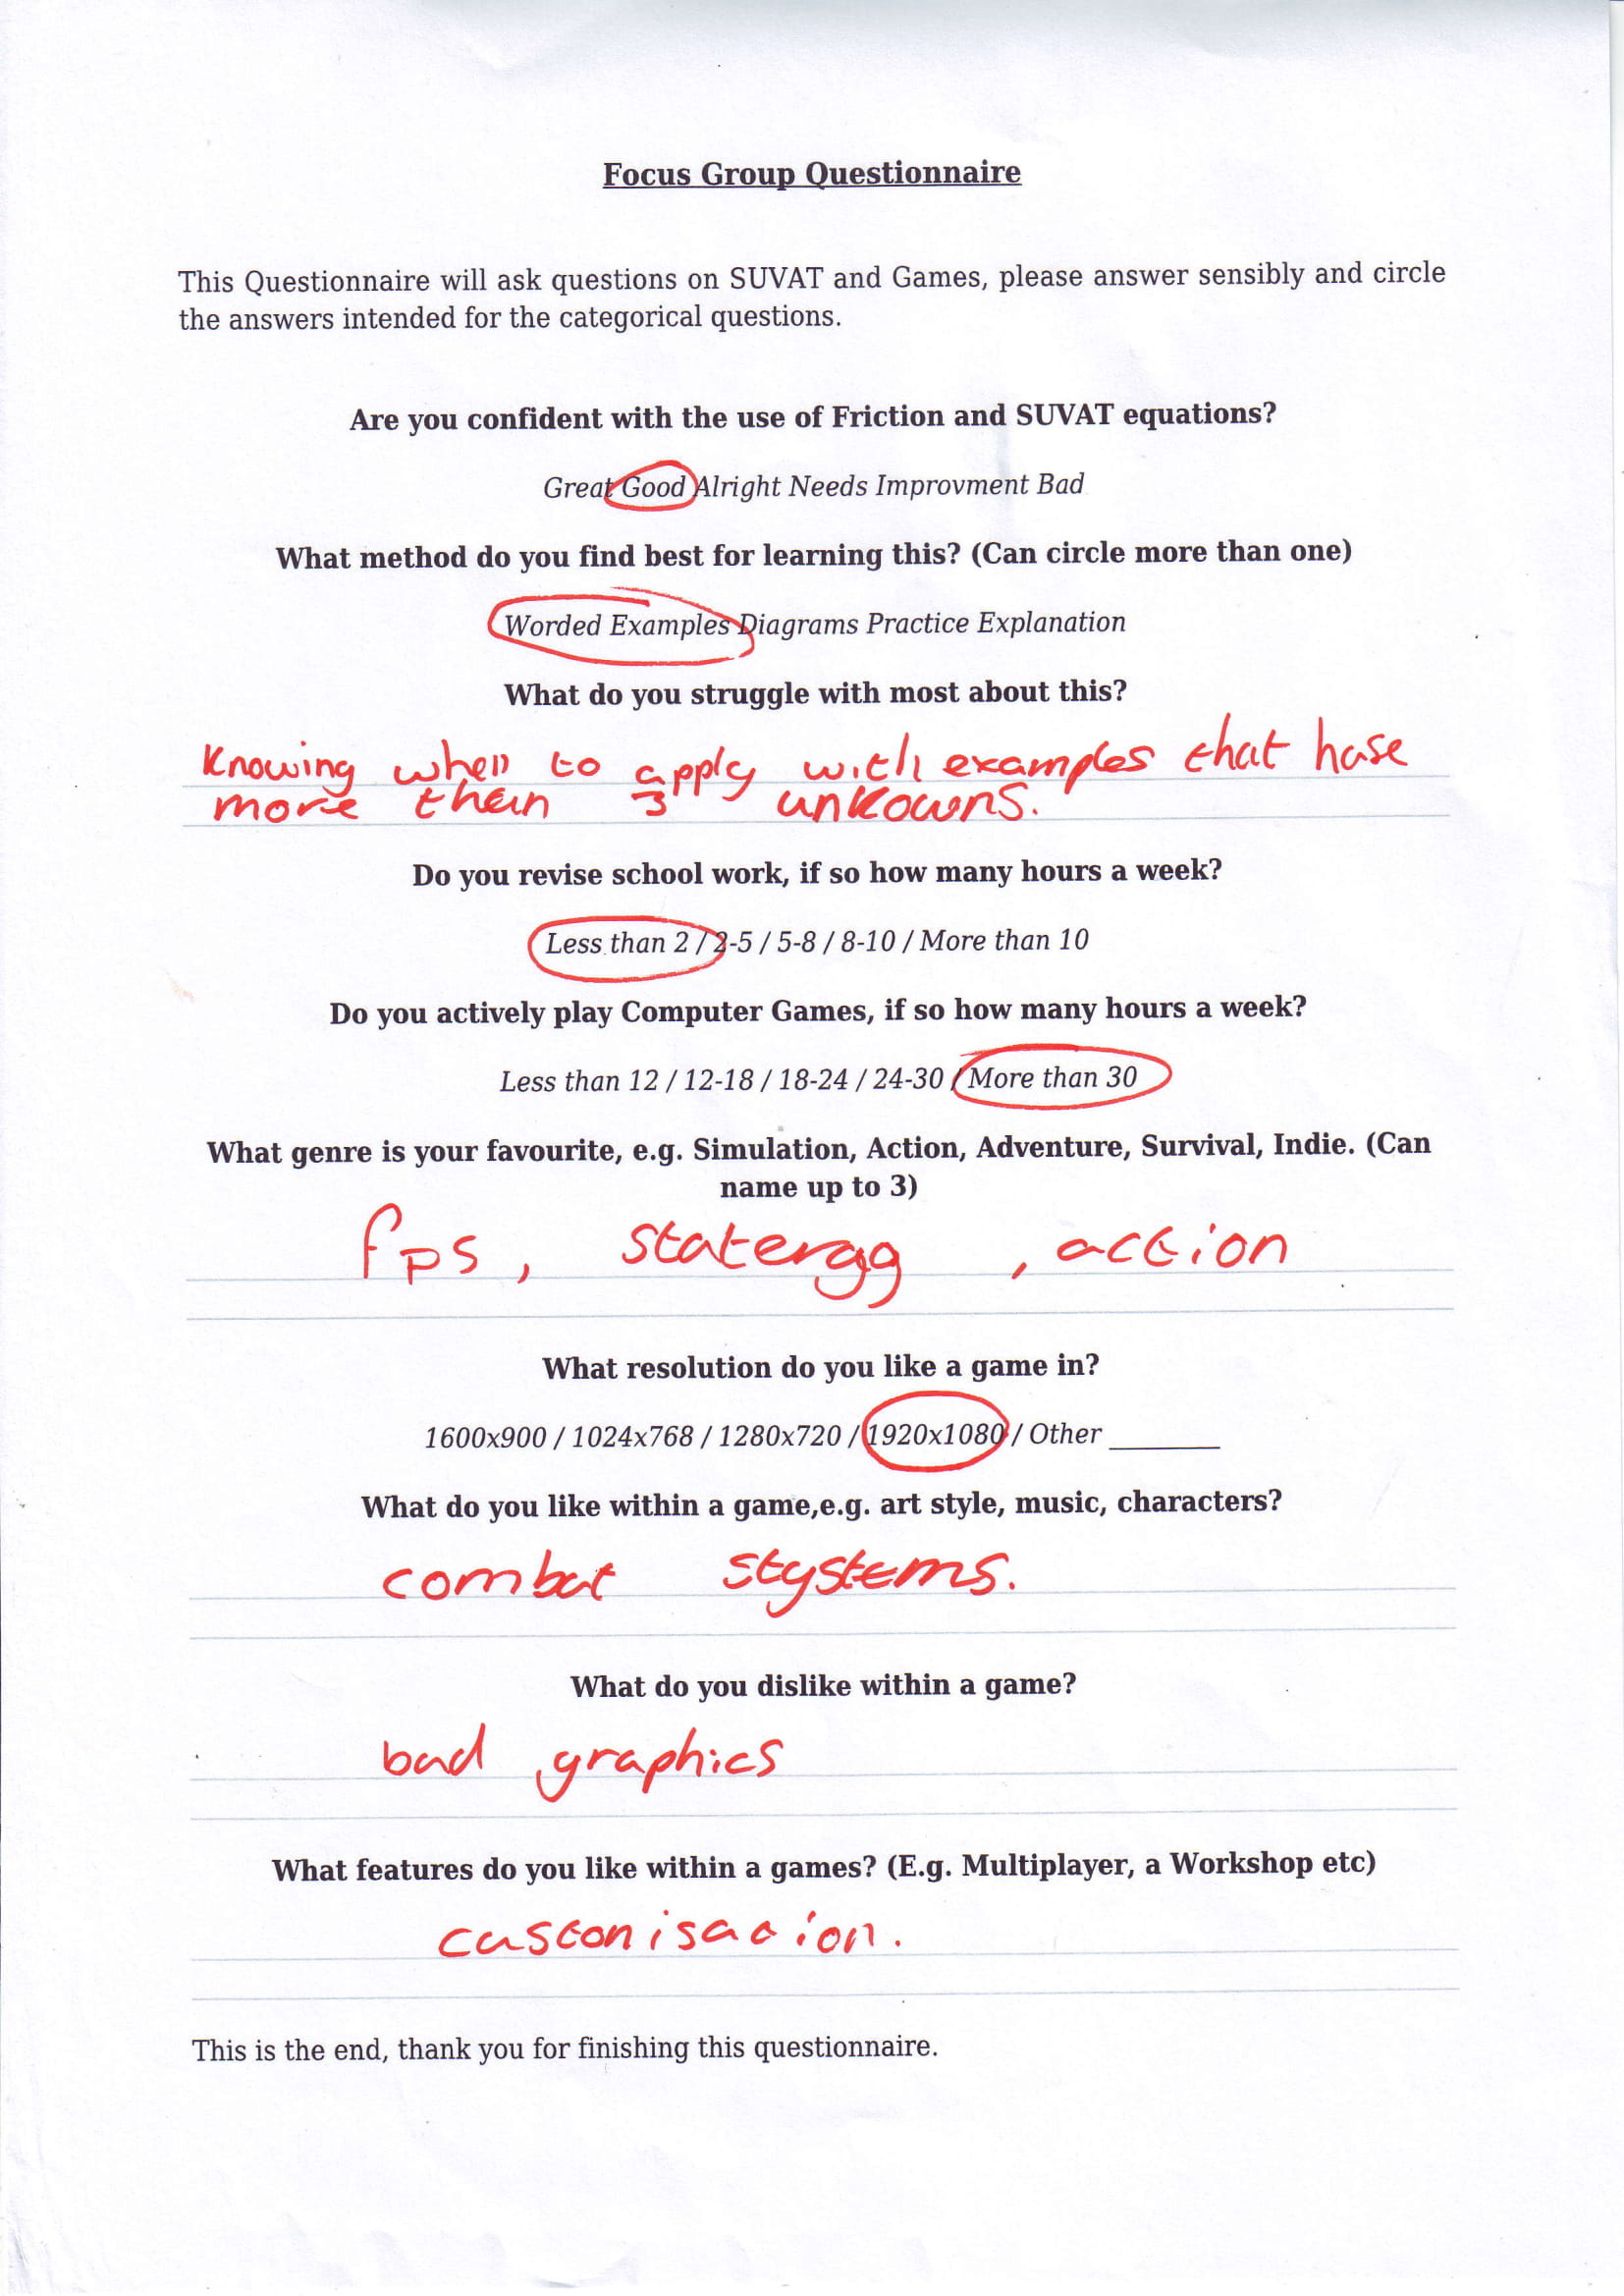 Focus Group Questionnaire
This Questionnaire will ask questions on SUVAT and Games, please answer sensibly and circle
the answers intended for the categorical questions.
Are you confident with the use of Friction and SUVAT equations?
Great Good Alright Needs Improvment Bad
What method do you find best for learning this? (Can circle more than one)
Worded Examples Diagrams Practice Explanation
What do you struggle with most about this?
Knowing when to apply with examples that hase
more then 3 unkowns.
Do you revise school work, if so how many hours a week?
Less than 2 / 2-5 / 5-8 / 8-10 / More than 10
Do you actively play Computer Games, if so how many hours a week?
Less than 12 / 12-18 / 18-24 / 24-30 / More than 30
What genre is your favourite, e.g. Simulation, Action, Adventure, Survival, Indie. (Can
name up to 3)
fps, statergy , action
What resolution do you like a game in?
1600x900 / 1024x768 / 1280x720 / 1920x1080 / Other ________
What do you like within a game,e.g. art style, music, characters?
combat stystems.
What do you dislike within a game?
bad graphics
What features do you like within a games? (E.g. Multiplayer, a Workshop etc)
customisation.
This is the end, thank you for finishing this questionnaire.